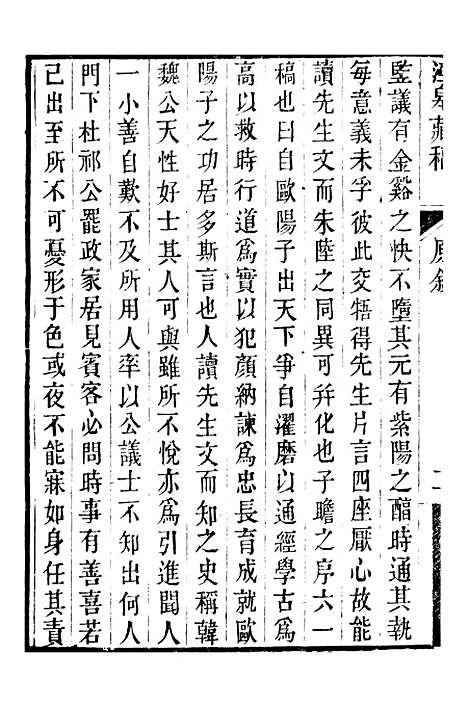 原敘
二
監議有金谿之快不墮其元有紫陽之醕時通其執
每意義未孚彼此交牾得先生片言四座厭心故能
讀先生文而朱陸之同異可幷化也子瞻之序六一
稿也曰自歐陽子出天下爭自濯磨以通經學古爲
高以救時行道爲實以犯顏納諫爲忠長育成就歐
陽子之功居多斯言也人讀先生文而知之史稱韓
魏公天性好士其人可與雖所不悅亦爲引進聞人
一小善自歎不及所用人率以公議士不知出何人
門下杜祁公罷政家居見賓客必問時事有善喜若
己出至所不可憂形于色或夜不能寐如身任其責